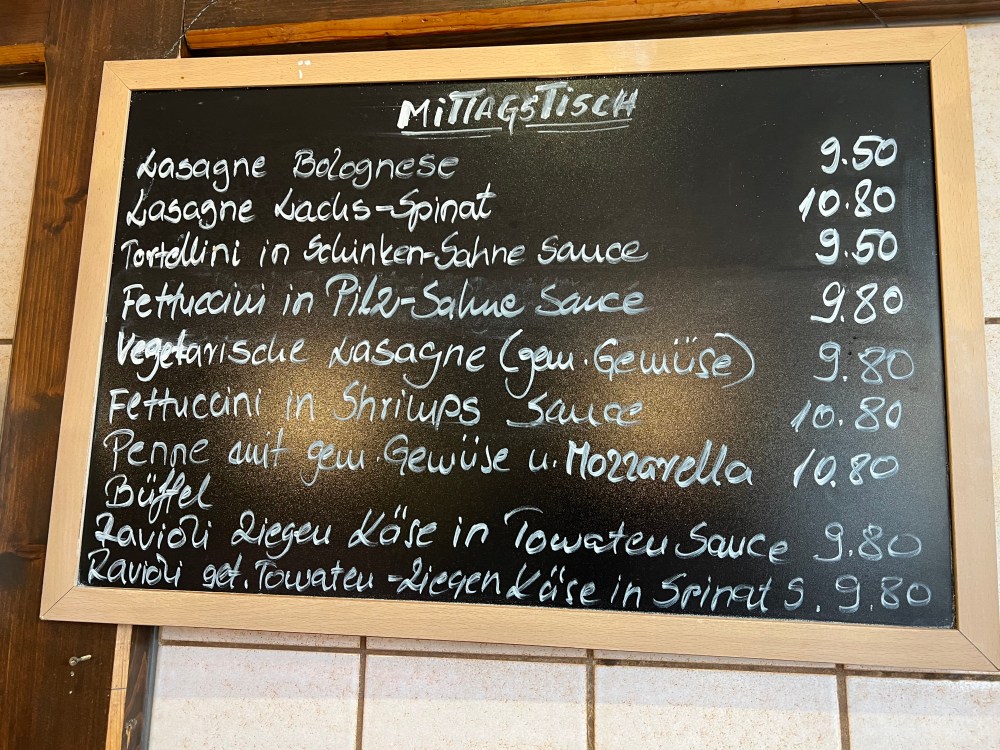 MITTAGSTISCH
Lasagne Bolognese 9.50
Lasagne Lachs-Spinat 10.80
Tortellini in Schinken-Sahne Sauce 9.50
Fettuccini in Pilz-Sahne Sauce 9.80
Vegetarische Lasagne (gem. Gemüse) 9.80
Fettuccini in Shrimps Sauce 10.80
Penne mit gem. Gemüse u. Mozzarella 10.80
Büffel
Ravioli Ziegen Käse in Tomaten Sauce 9.80
Ravioli get. Tomaten-Ziegen Käse in Spinat S. 9.80